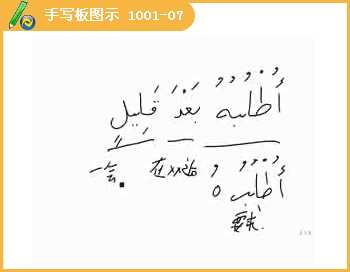 手写板图示 1001-07
أُطْلُبُهُ بَعْدَ قَلِيلٍ
一会 在XX后
أُطْلُبُ
要求